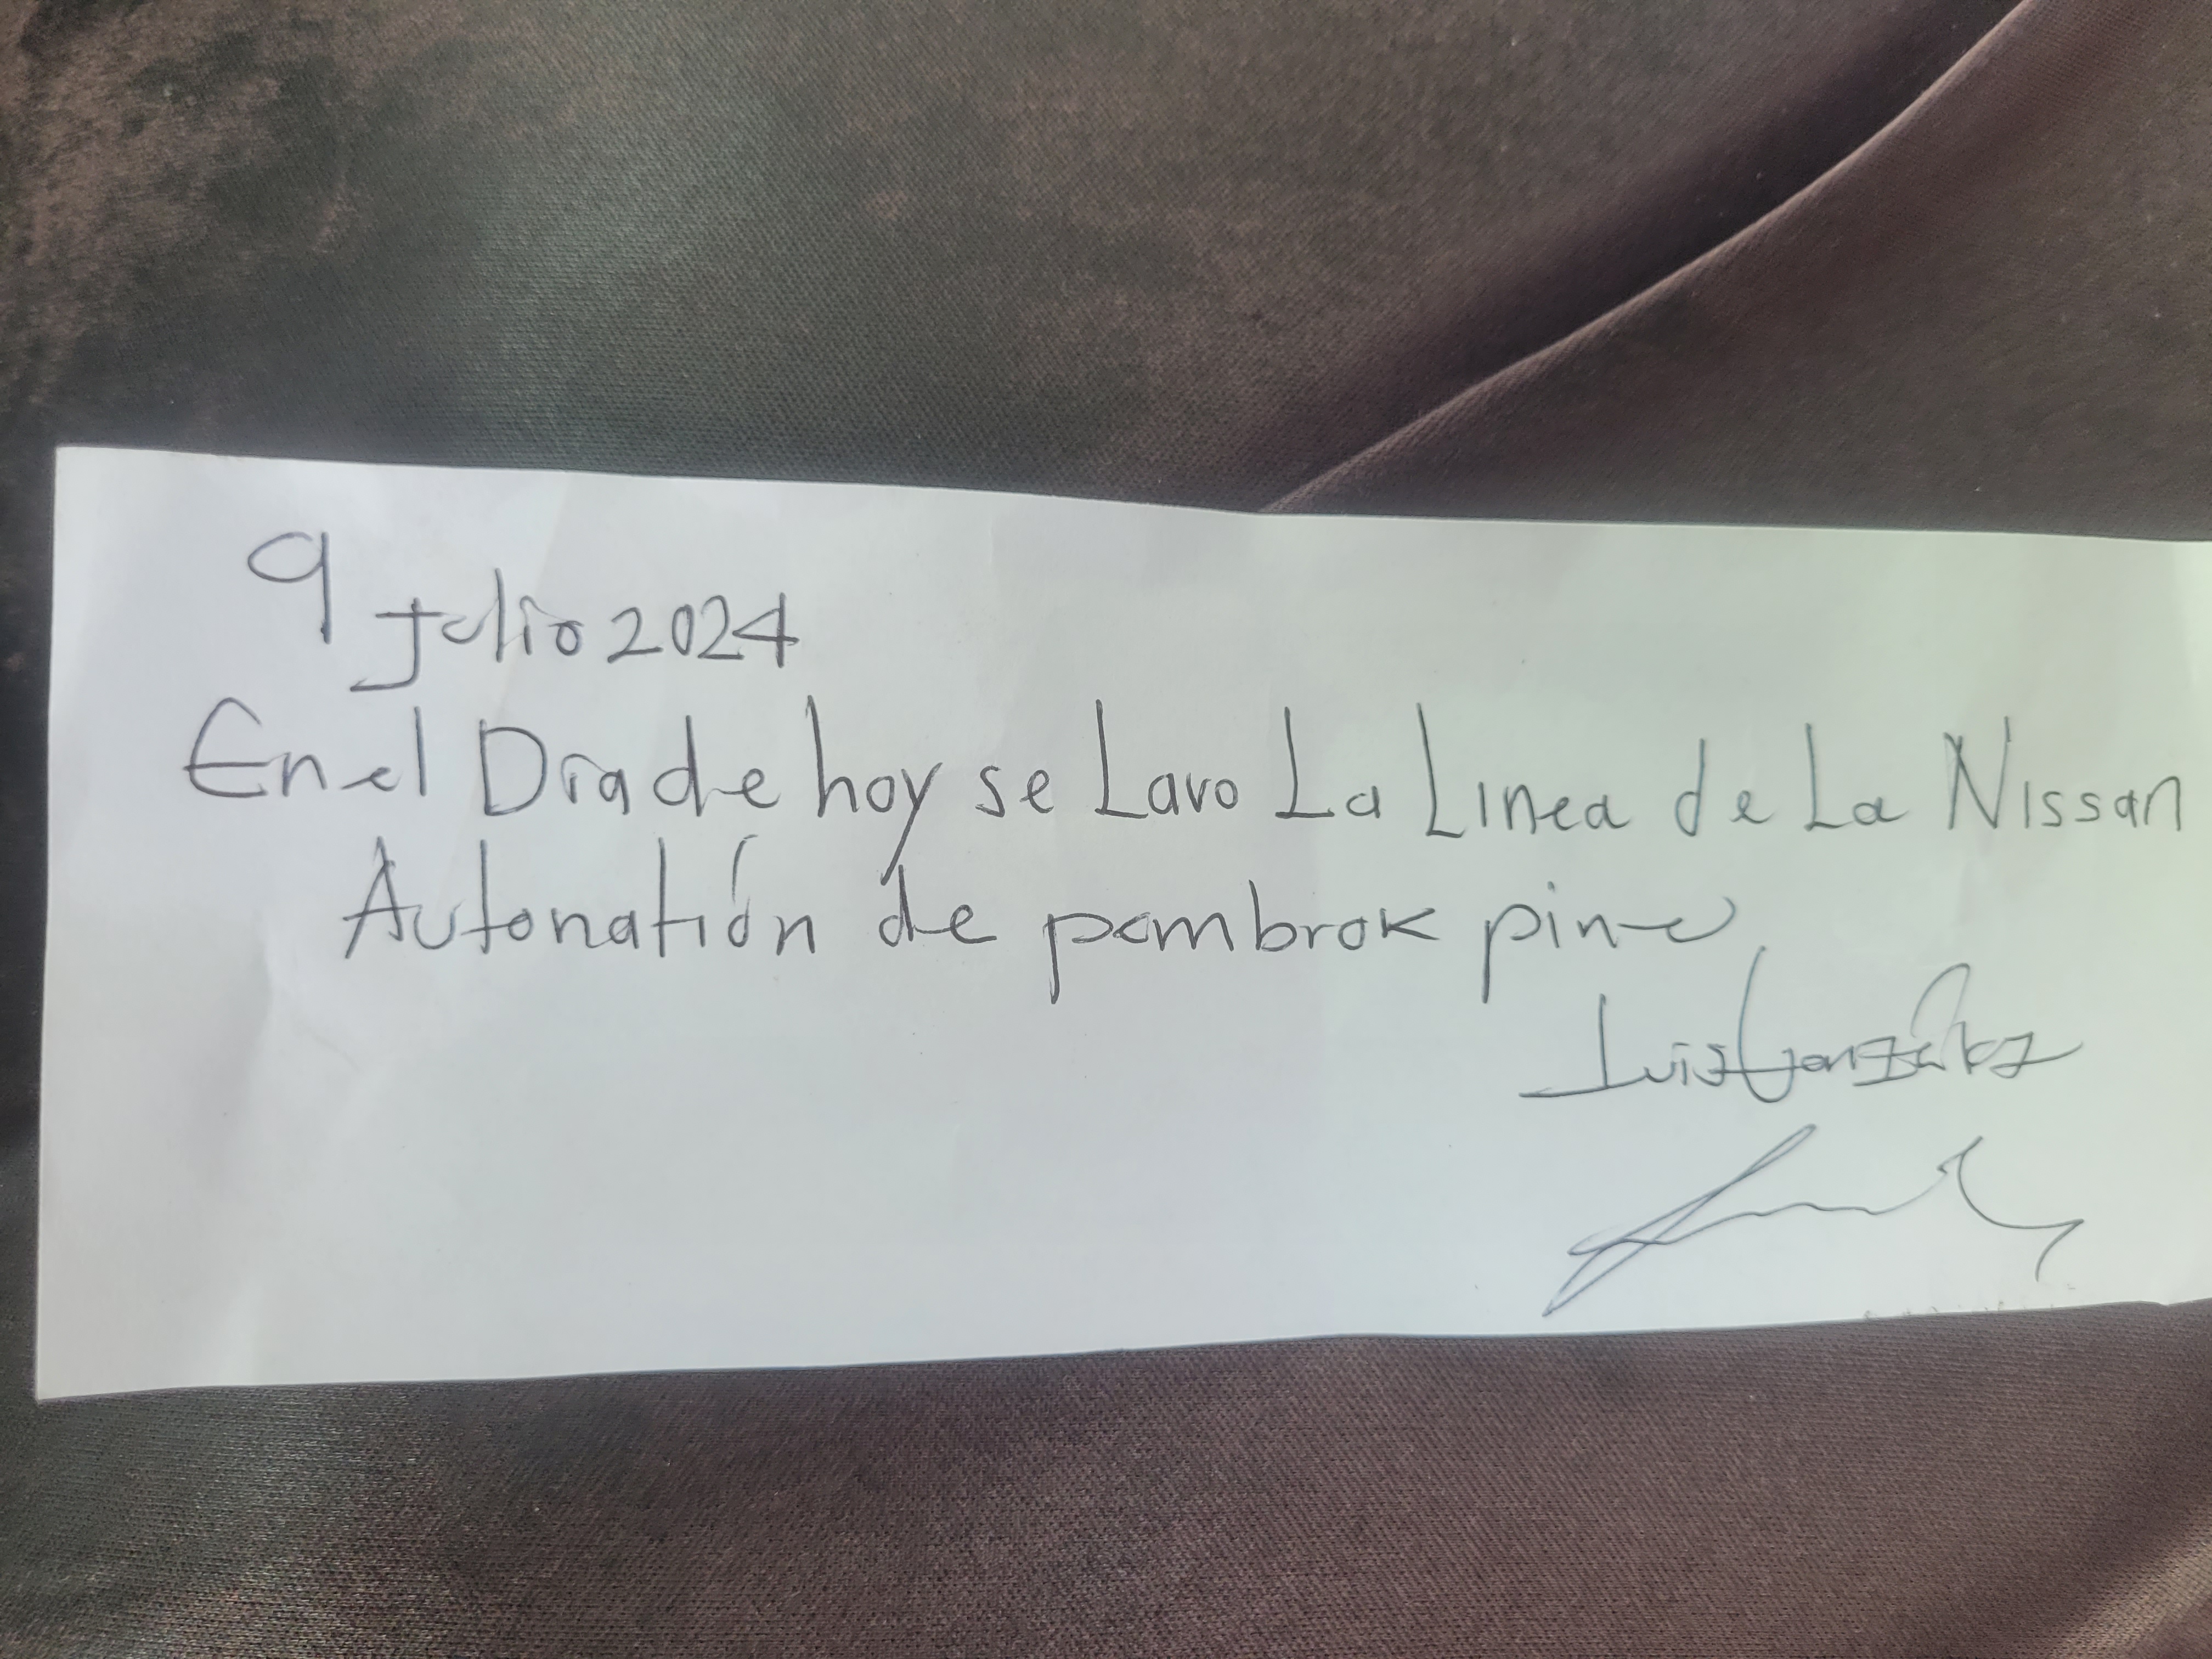 9 Julio 2024
En el Dia de hoy se Lavo La Linea de La Nissan
Autonatión de pembrok pine
Luis González